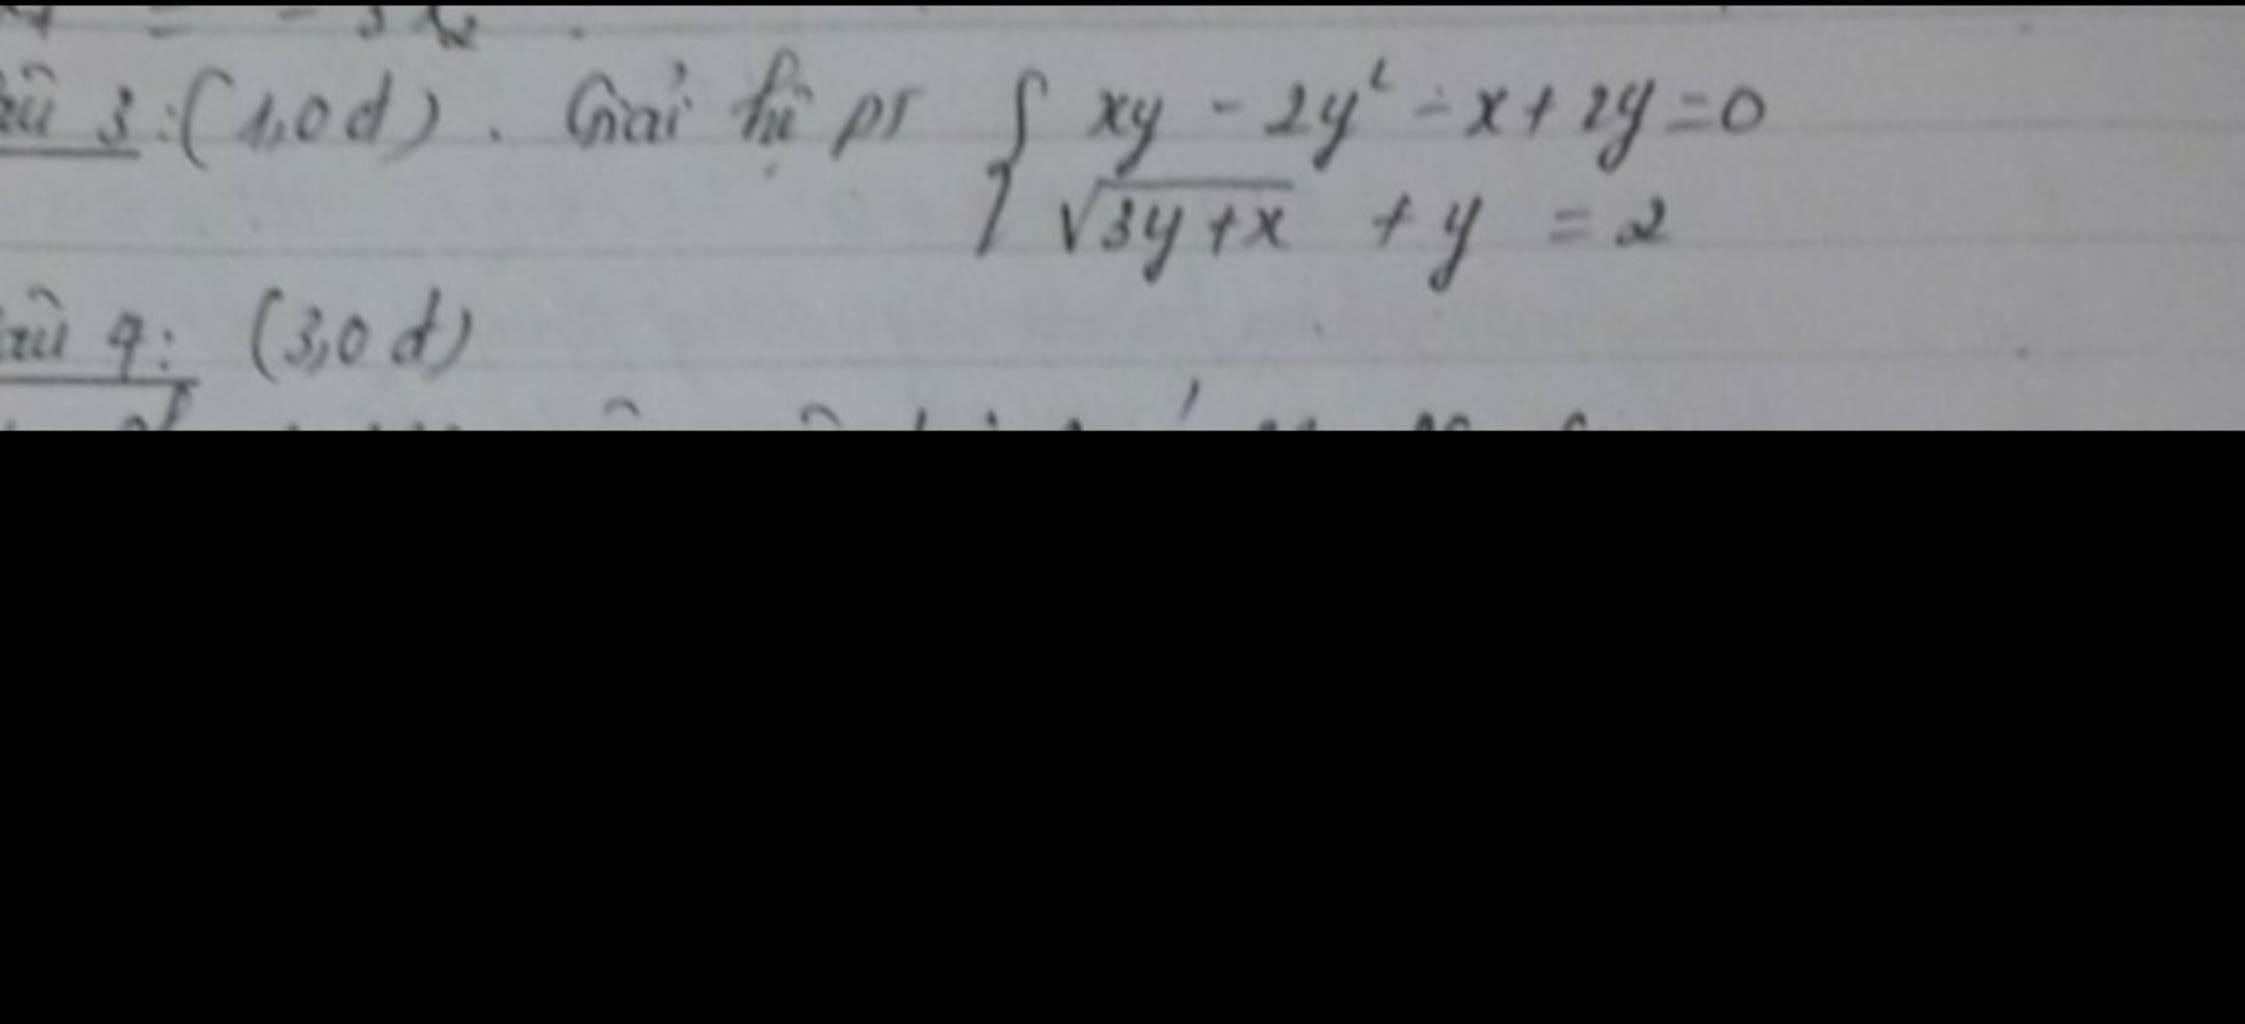 3: (1,0 d). Giải hệ pt { xy - 2y² - x + 2y = 0
√3y + x + y = 2
4: (3,0 d)